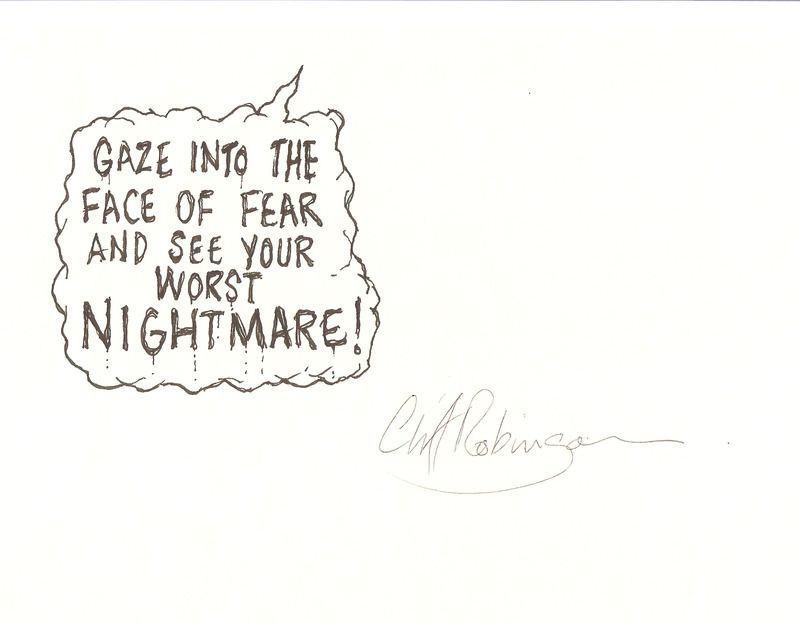 GAZE INTO THE
FACE OF FEAR
AND SEE YOUR
WORST
NIGHTMARE!
Cliff Robinson